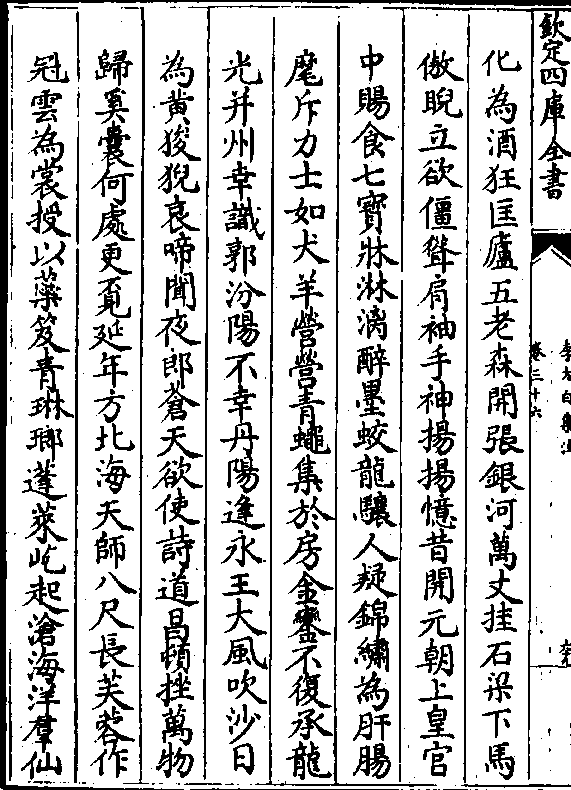 欽定四庫全書
化為酒狂匡廬五老森開張銀河萬丈挂石梁下馬
傲睨立欲僵聳肩袖手神揚揚憶昔開元朝上皇官
中賜食七寳牀淋漓醉墨蛟龍驤人疑錦繡為肝腸
麾斥力士如犬羊營營青蠅集於房金鑾不復承龍
光并州幸識郭汾陽不幸丹陽逢永王大風吹沙日
為黄狻猊哀啼聞夜郎蒼天欲使詩道昌頓挫萬物
歸奚囊何處更覔延年方北海天師八尺長芙蓉作
冠雲為裳授以藥笈青琳瑯蓬萊屹起滄海洋羣仙
李太白集注
卷三十六